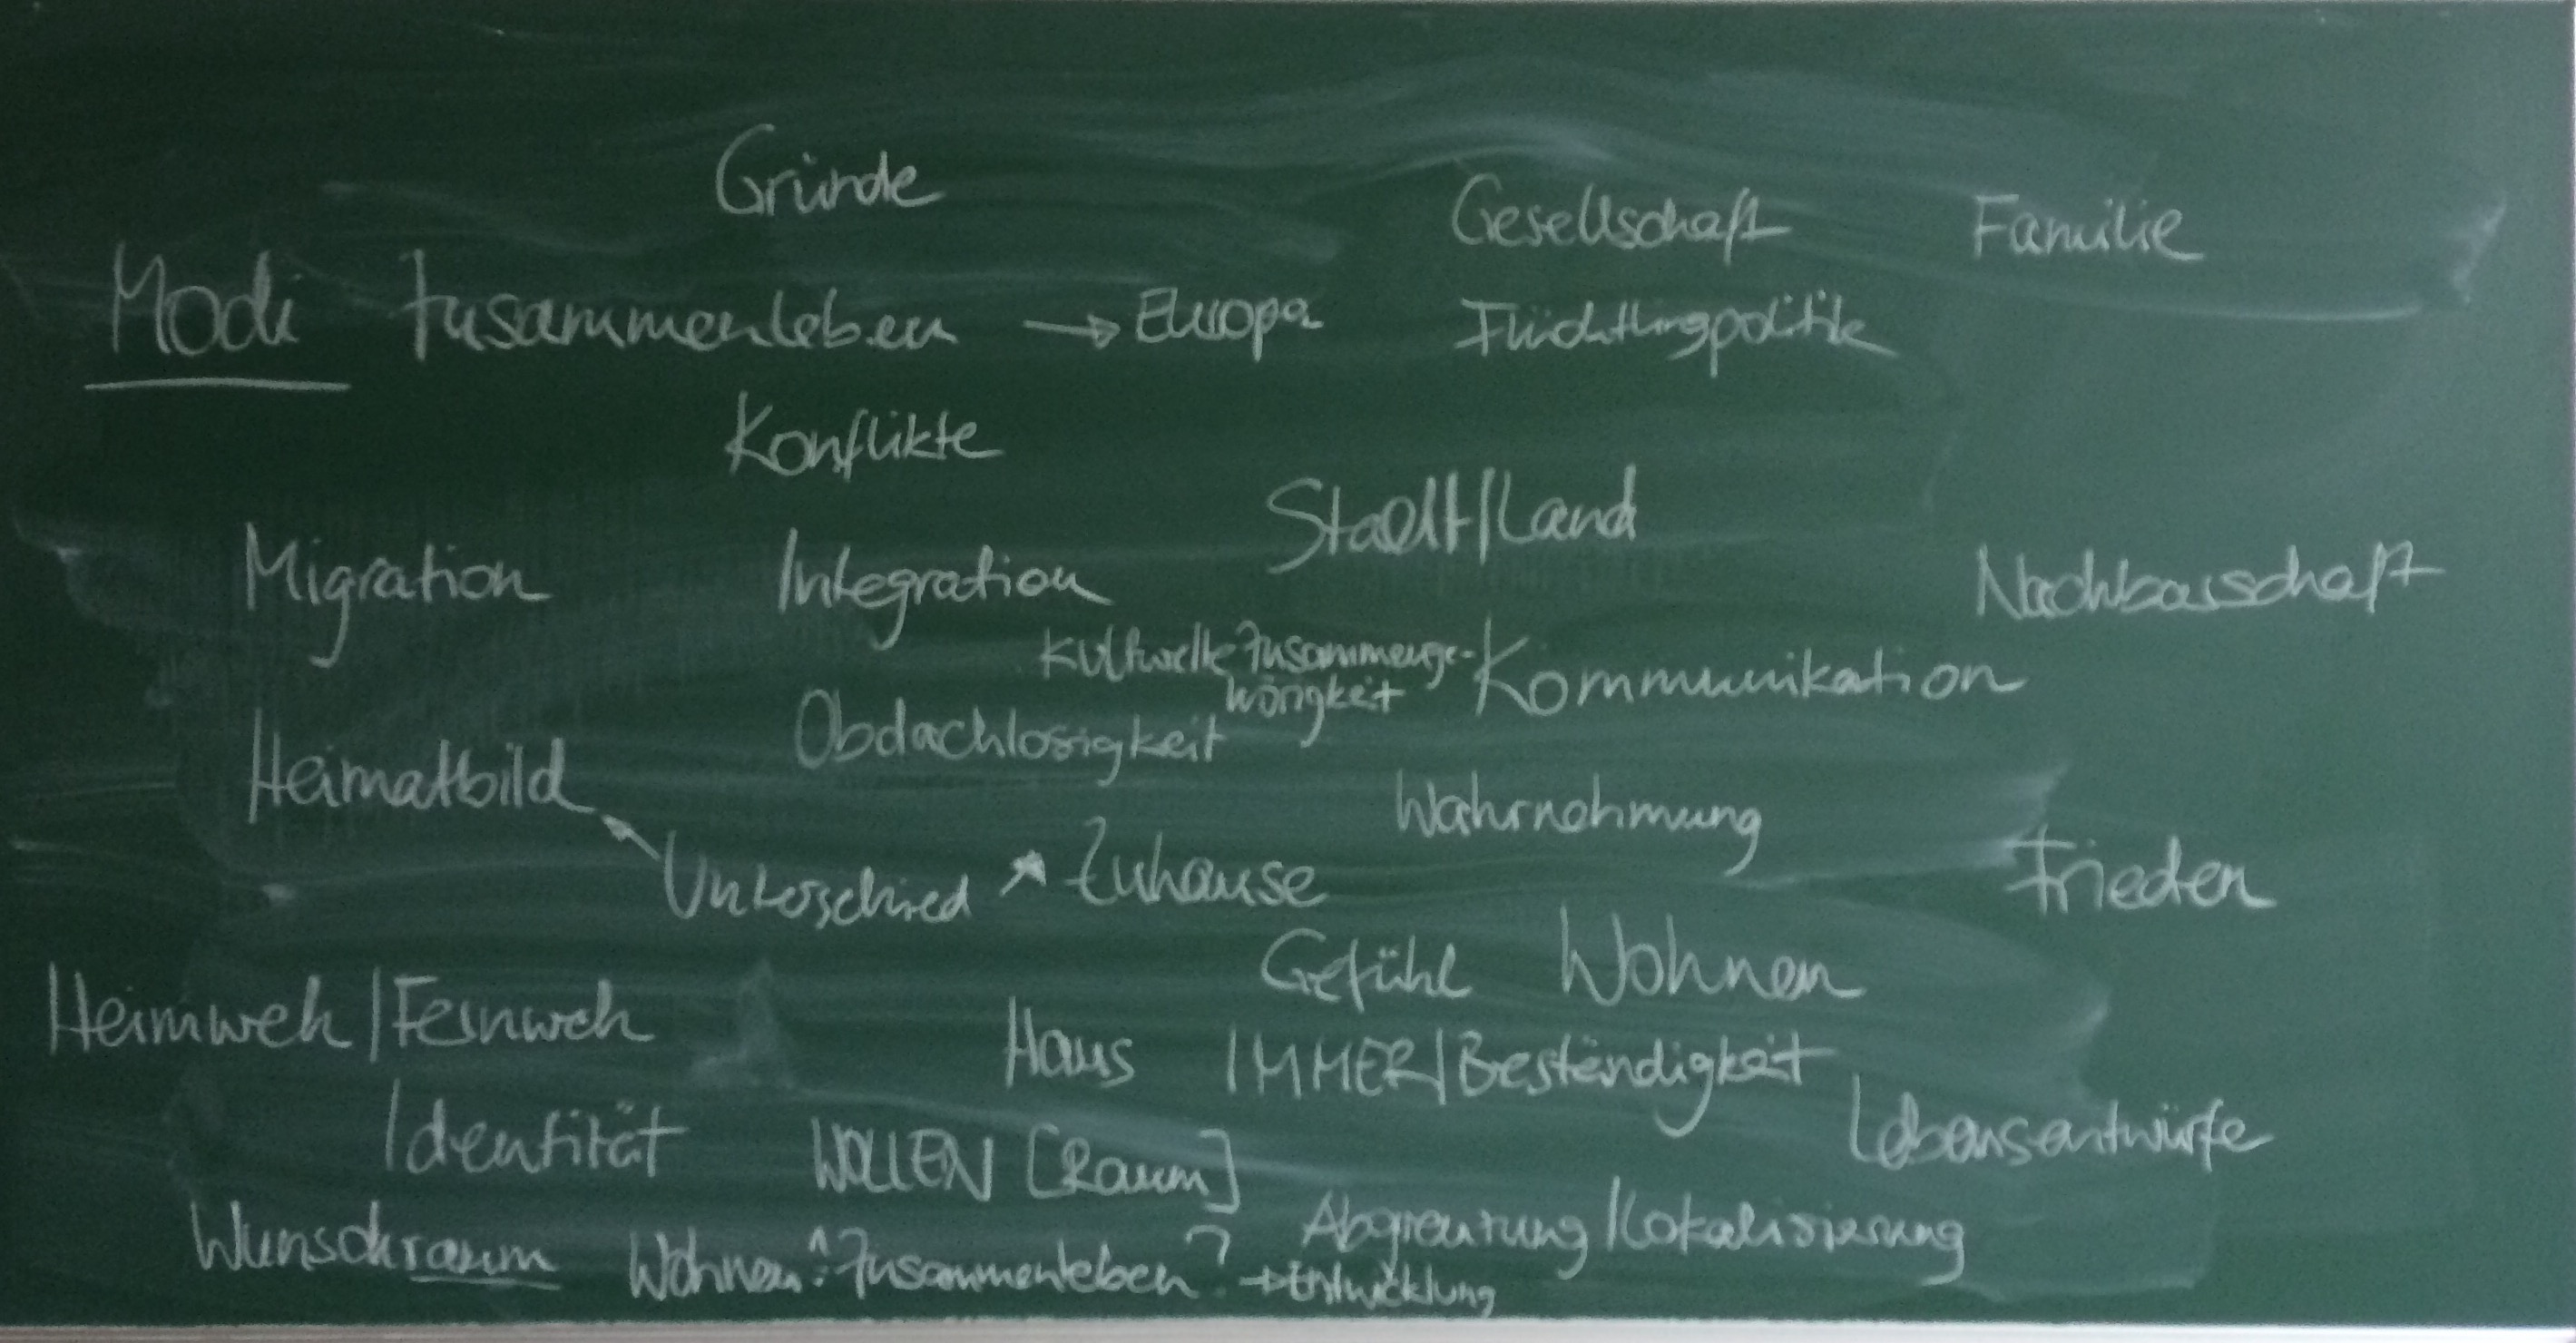 Gründe
Gesellschaft Familie
Modi Zusammenleben → Europa Flüchtlingpolitik
Konflikte
Stadt/Land
Migration Integration Nachbarschaft
Kulturelle Zusammenge-
hörigkeit
Kommunikation
Obdachlosigkeit
Heimatbild Wahrnehmung
Unterschied Zuhause Frieden
Gefühl Wohnen
Heimweh/Fernweh Haus IMMER/Beständigkeit
Identität WOLLEN [Raum] Lebensentwürfe
Wunschraum Abgrenzung/Lokalisierung
Wohnen ≙ Zusammenleben? → Entwicklung